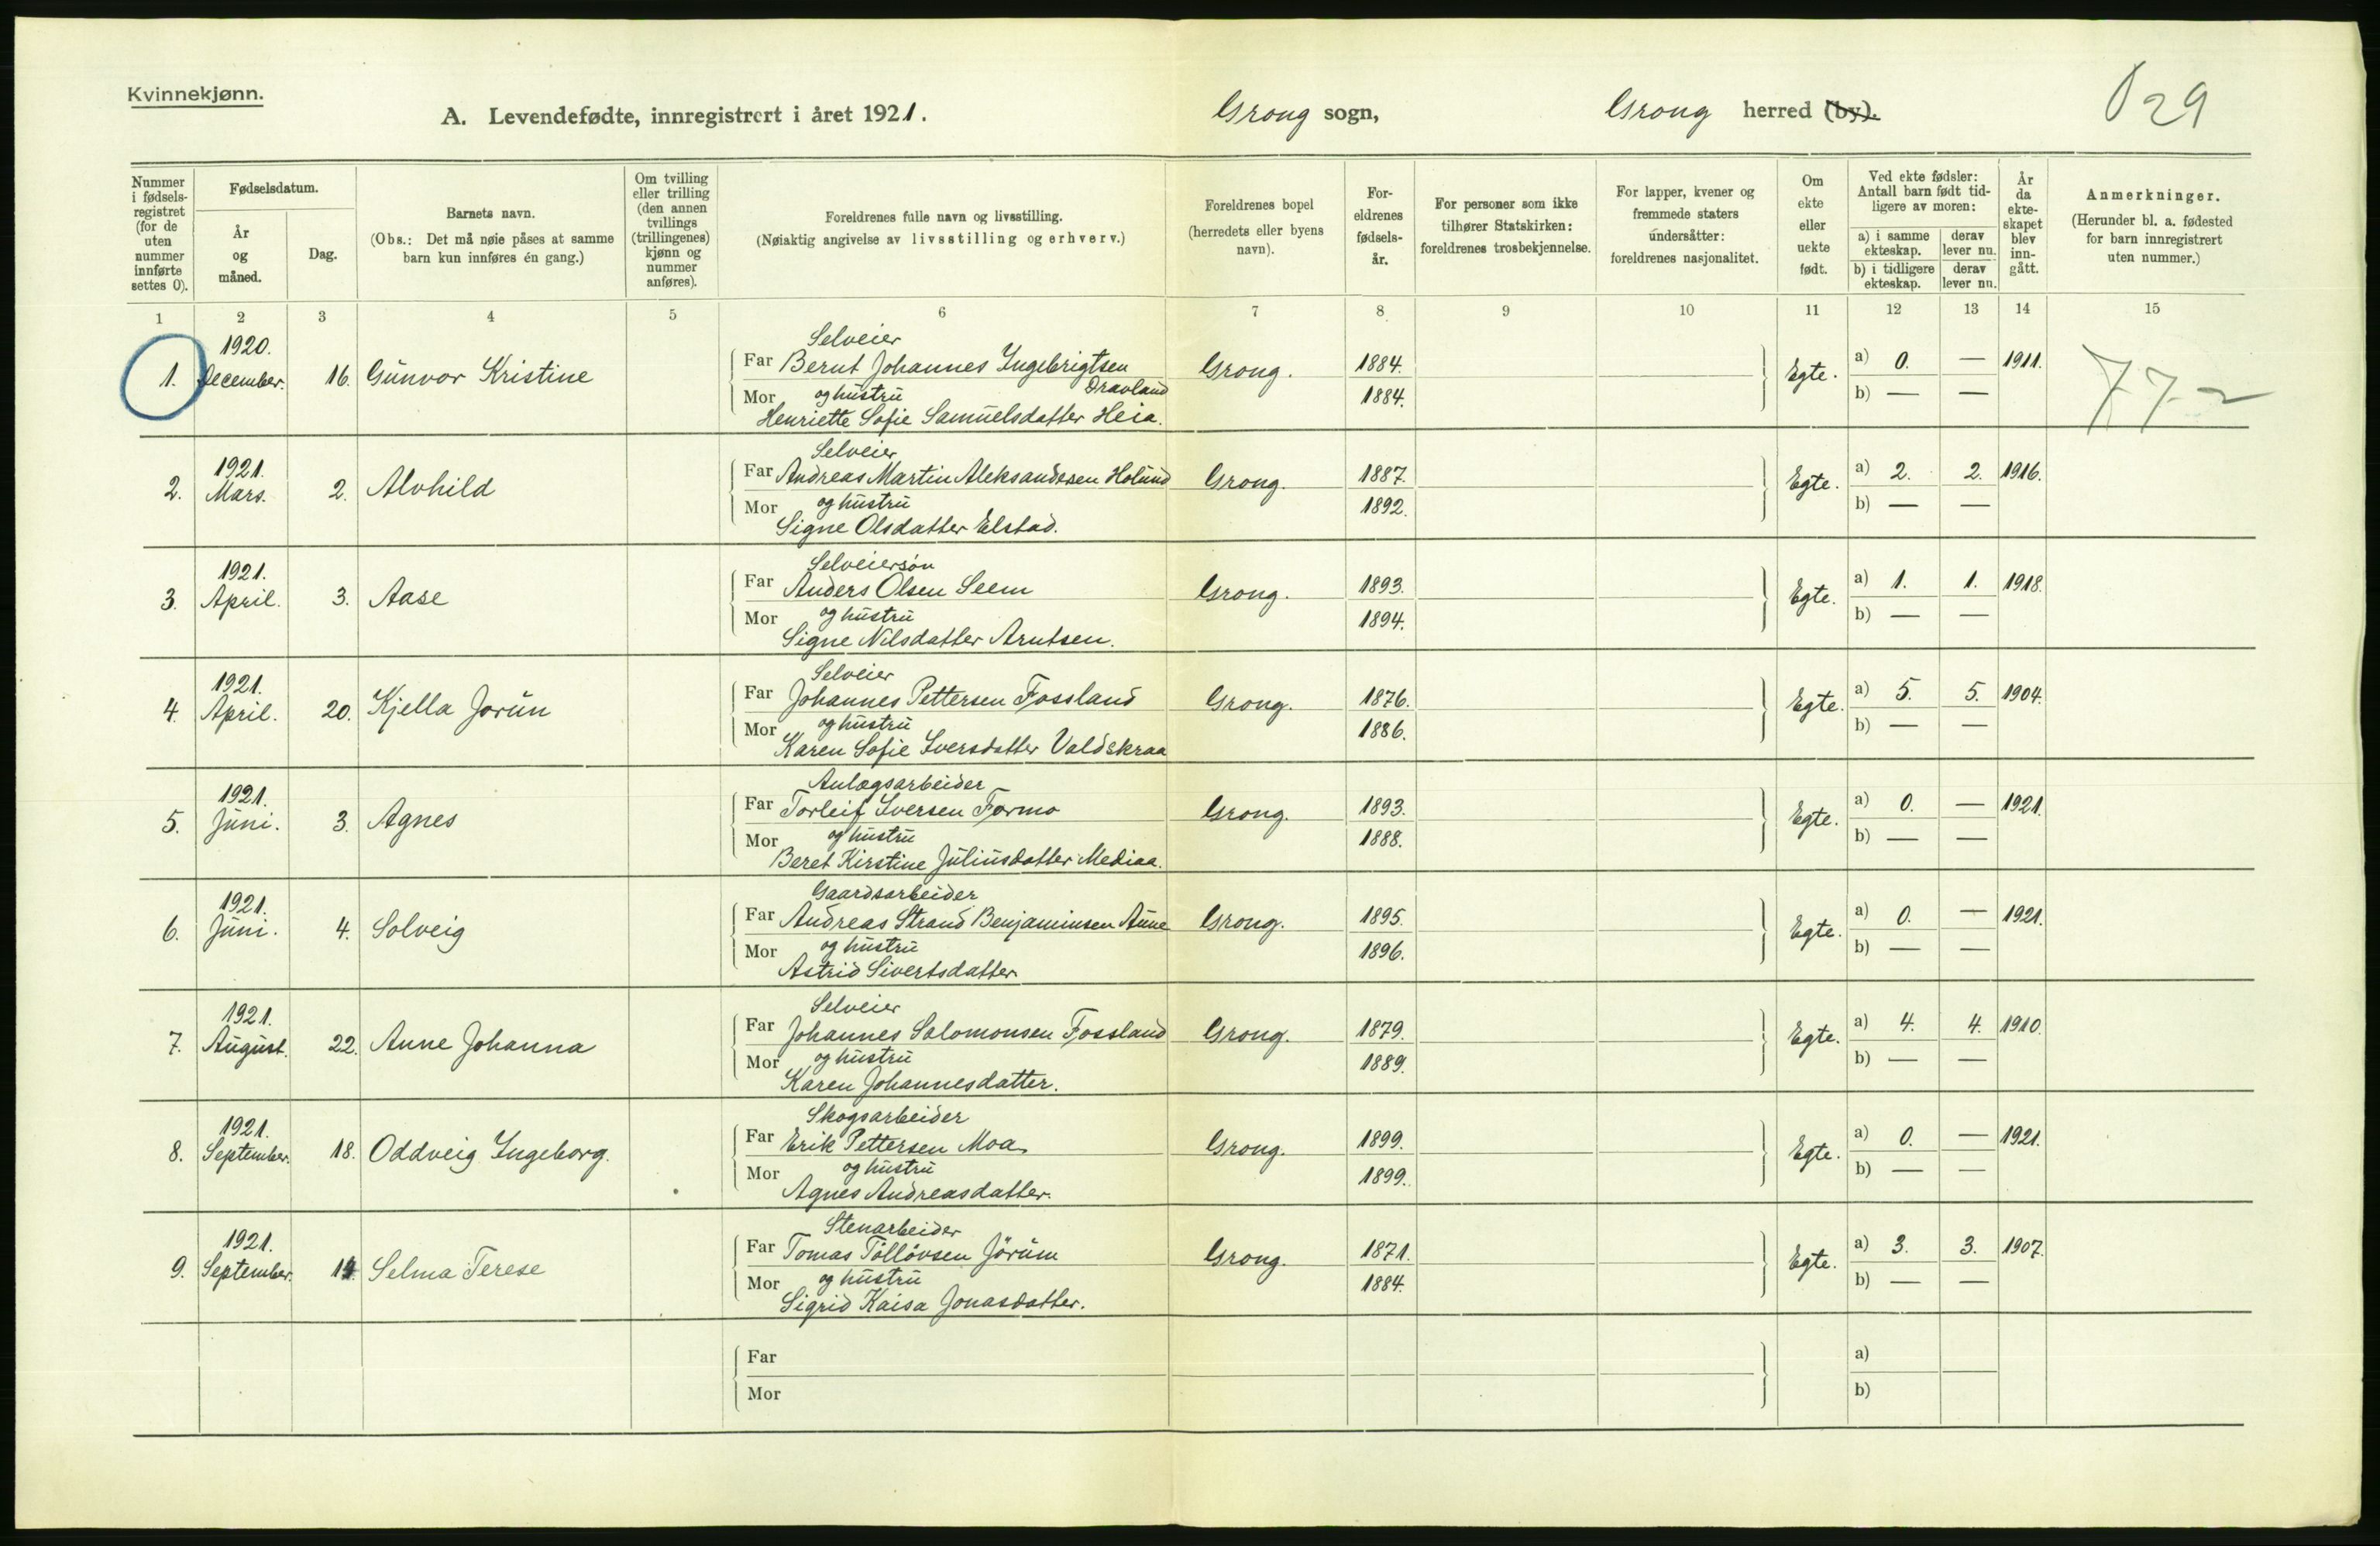 Kvinnekjønn.
A. Levendefødte, innregistrert i året 1921. Grong sogn, Grong herred (by). 29
Nummer i fødselsregistret (for de uten nummer innførte settes 0).
Fødselsdatum.
År og måned.
Dag.
Barnets navn.
(Obs.: Det må nøie påses at samme barn kun innføres én gang.)
Om tvilling eller trilling (den annen tvillings (trillingenes) kjønn og nummer anføres).
Foreldrenes fulle navn og livsstilling.
(Nøiaktig angivelse av livsstilling og erhverv.)
Foreldrenes bopel (herredets eller byens navn).
Foreldrenes fødselsår.
For personer som ikke tilhører Statskirken: foreldrenes trosbekjennelse.
For lapper, kvener og fremmede staters undersåtter: foreldrenes nasjonalitet.
Om ekte eller uekte født.
Ved ekte fødsler: Antall barn født tidligere av moren:
a) i samme ekteskap. derav lever nu.
b) i tidligere ekteskap. derav lever nu.
År da ekteskapet blev inngått.
Anmerkninger.
(Herunder bl. a. fødested for barn innregistrert uten nummer.)
1 2 3 4 5 6 7 8 9 10 11 12 13 14 15
1920. Selveier
1. December. 16. Gunvor Kristine Far Bernt Johannes Ingebrigtsen Dravland Grong. 1884. Egte. a) 0. — 1911. 77-2
Mor og hustru 1884. b) — —
Henriette Sofie Samuelsdatter Heia.
1921. Selveier
2. Mars. 2. Alvhild Far Andreas Martin Aleksandersen Holund Grong. 1887. Egte. a) 2. 2. 1916.
Mor og hustru 1892. b) — —
Signe Olsdatter Elstad.
1921. Selveiersøn
3. April. 3. Aase Far Anders Olsen Seem Grong. 1893. Egte. a) 1. 1. 1918.
Mor og hustru 1894. b) — —
Signe Nilsdatter Arntsen.
1921. Selveier
4. April. 20. Kjella Jorun Far Johannes Pettersen Fossland Grong. 1876. Egte. a) 5. 5. 1904.
Mor og hustru 1886. b) — —
Karen Sofie Iversdatter Valdskraa
1921. Anlægsarbeider
5. Juni. 3. Agnes Far Torleif Iversen Formo Grong. 1893. Egte. a) 0. — 1921.
Mor og hustru 1888. b) — —
Beret Kirstine Juliusdatter Mediaa.
1921. Gaardsarbeider
6. Juni. 4. Solveig Far Andreas Strand Benjaminsen Aune Grong. 1895. Egte. a) 0. — 1921.
Mor og hustru 1896. b) — —
Astrid Sivertsdatter
1921. Selveier
7. August. 22. Anne Johanna Far Johannes Salomonsen Fossland Grong. 1879. Egte. a) 4. 4. 1910.
Mor og hustru 1889. b) — —
Karen Johannesdatter.
1921. Skogsarbeider
8. September. 18. Oddveig Ingeborg. Far Erik Pettersen Moa Grong. 1899. Egte. a) 0. — 1921.
Mor og hustru 1899. b) — —
Agnes Andreasdatter.
1921. Stenarbeider
9. September. Selma Terese Far Tomas Tølløvsen Jørum Grong. 1871. Egte. a) 3. 3. 1907.
Mor og hustru 1884. b) — —
Sigrid Kaisa Jonasdatter.
Far a)
Mor b)